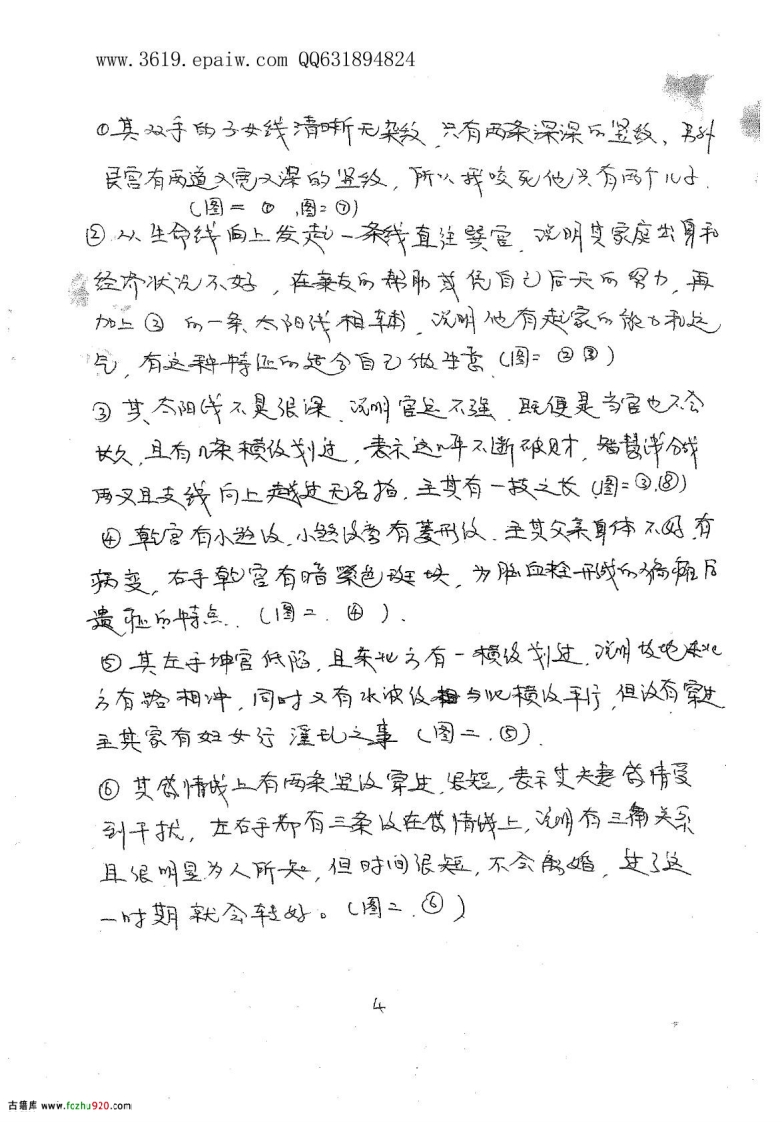 www.3619.epaiw.com QQ631894824
①其双手的子女线清晰无杂纹,只有两条深深的竖纹、另外
艮宫有两道又宽又深的竖纹,所以我咬死他只有两个儿子.
(图二①,图二⑦)
②从生命线向上发起一条线直往巽宫,说明其家庭出身和
经济状况不好,在亲友的帮助或凭自己后天的努力,再
加上③的一条太阳线相辅,说明他有起家的能力和运
气,有这种特征的适合自己做生意(图二②③)
③其太阳线不是很深,说明官运不强,既便是当官也不会
长久,且有几条横纹划过,表示这几年不断破财,智慧线分成
两叉且支线向上越过无名指.主其有一技之长(图二③.⑧)
④乾宫有小竖纹.小竖纹旁有菱形纹.主其父亲身体不好,有
病变,右手乾宫有暗紫色斑块,为脑血栓形成的偏瘫后
遗症的特点.(图二.④).
⑤其左手坤宫低陷,且东北方有一横纹划过,说明坟地东北
方有路相冲,同时又有水波纹与此横纹平行,但没有穿过
主其家有妇女行淫乱之事(图二.⑤).
⑥其感情线上有两条竖纹穿过,很短,表示丈夫妻感情受
到干扰,左右手都有三条纹在感情线上,说明有三角关系
且很明显为人所知,但时间很短,不会离婚,过了这
一时期就会转好。(图二.⑥)
4
古籍库 www.fczhu920.com